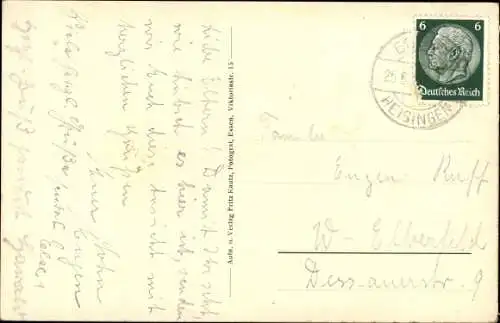 Liebe Eltern! Damit Ihr seht
wie hübsch es hier ist, senden
wir Euch diese Ansicht mit
herzlichen Grüßen
Euer Sohn
Eugen
Viele Grüße
Else
Auln. u. Verlag Fritz Kautz, Fotogral, Essen, Viktoriastr. 15
6 6
Deutsches Reich
HEISINGEN
Familie
Eugen Ruff
W-Elberfeld
Dessauerstr. 9